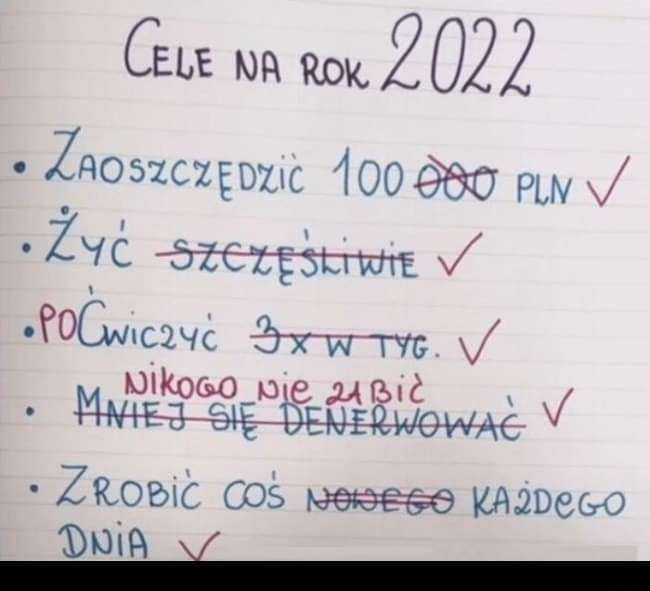 CELE NA ROK 2022
• ZAOSZCZĘDZIĆ 100 000 PLN ✓
• ŻYĆ SZCZĘŚLIWIE ✓
• POĆWICZYĆ 3 X W TYG. ✓
NIKOGO NIE ZABIĆ
• MNIEJ SIĘ DENERWOWAĆ ✓
• ZROBIĆ COŚ NOWEGO KAŻDEGO
DNIA ✓